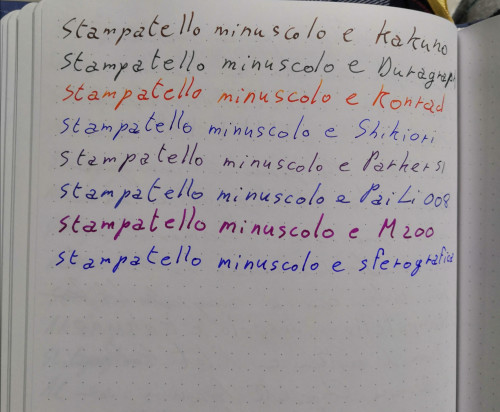 Stampatello minuscolo e Kakuno
Stampatello minuscolo e Duragraph
Stampatello minuscolo e Konrad
Stampatello minuscolo e Shikiori
Stampatello minuscolo e Parker51
Stampatello minuscolo e PaiLi 009
Stampatello minuscolo e M200
Stampatello minuscolo e sferografica